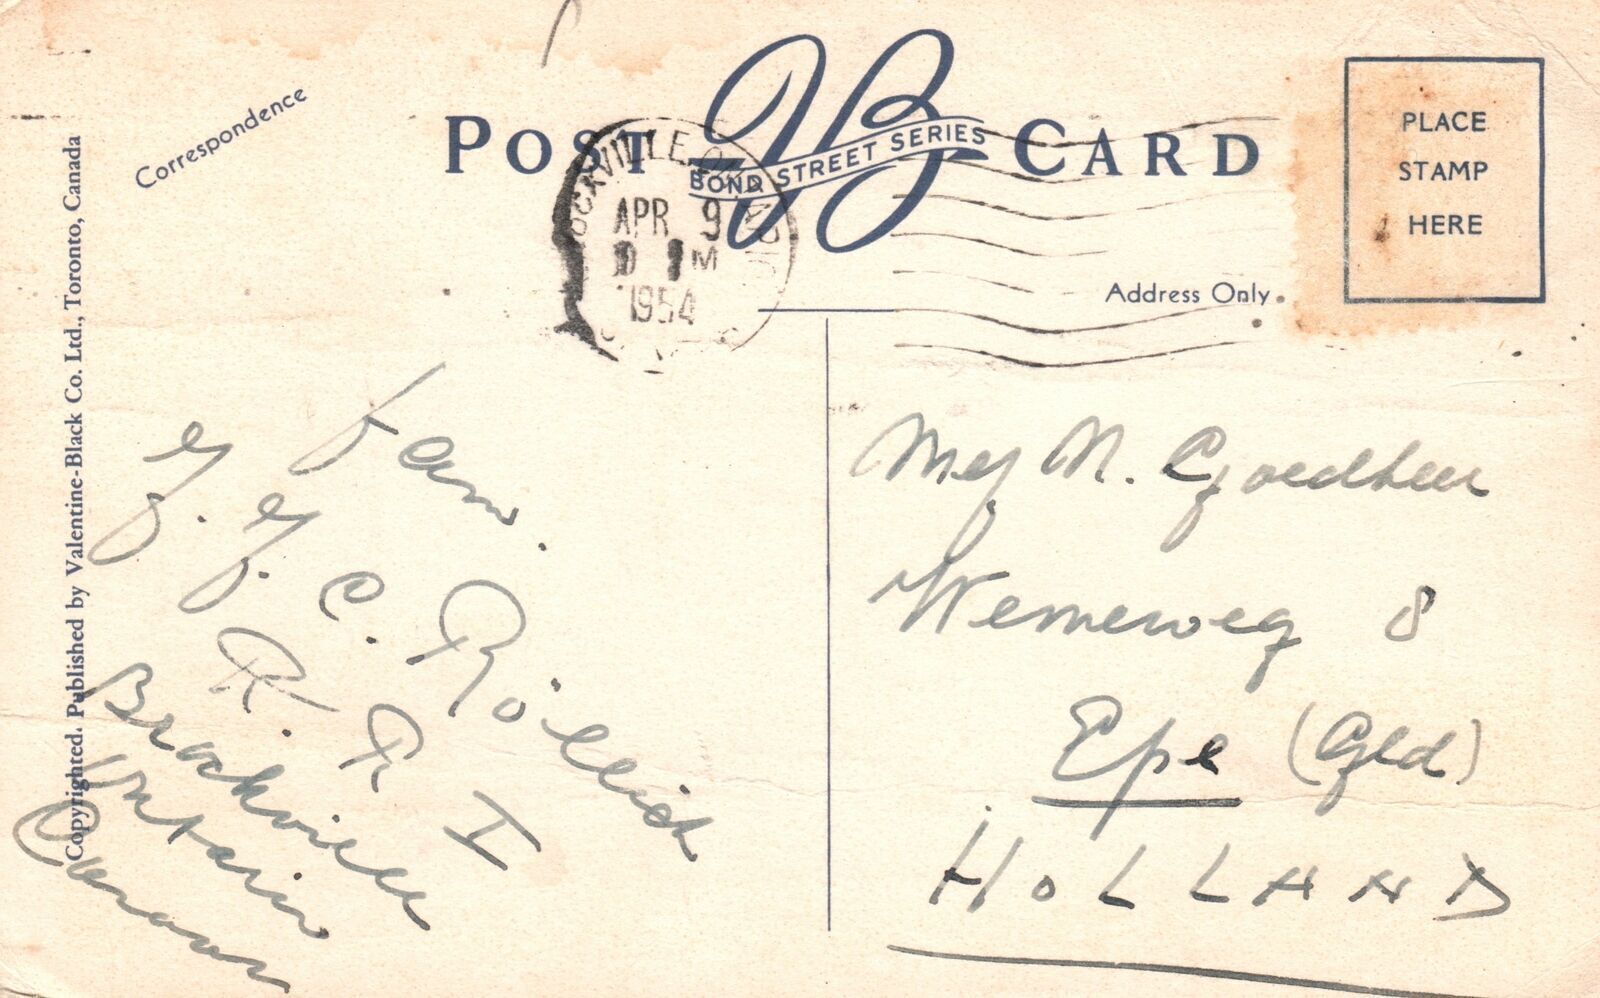 Correspondence
POST CARD
VB
BOND STREET SERIES
PLACE
STAMP
HERE
Address Only
APR 9
M
1954
Copyrighted. Published by Valentine-Black Co. Ltd., Toronto, Canada
Fam.
C.
R. R I
Brockville
Ontario
Canada
Mej N. Goedheer
Wemeweg 8
Epe (Gld)
HOLLAND